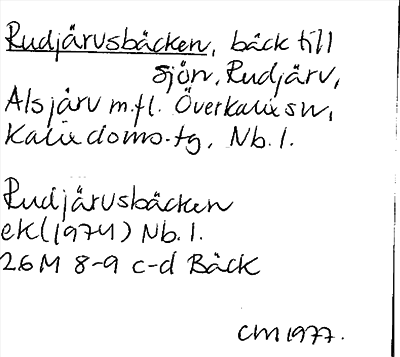 Rudjärvsbäcken, bäck till
sjön, Rudjärv,
Alsjärv m.fl. Överkalix sn,
Kalix doms.tg, Nb.l.
Rudjärvsbäcken
ek (1974) Nb.l.
26M 8-9 c-d Bäck
CM 1977.